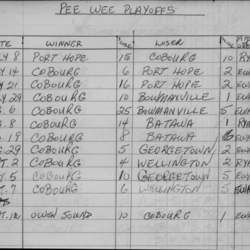 PEE WEE PLAYOFFS
TE WINNER LOSER
Y 8 PORT HOPE 15 COBOURG 10
Y 14 COBOURG 6 PORT HOPE 2
Y 21 COBOURG 16 PORT HOPE 2
Y 29 COBOURG 10 BOWMANVILLE 1
G. 6 COBOURG 25 BOWMANVILLE 5
G. 8 COBOURG 14 BATAWA 1
G. 19 COBOURG 8 BATAWA 6
G. 29 COBOURG 5 GEORGETOWN 2
T. 2 COBOURG 4 WELLINGTON 2
T. 5 COBOURG 10 GEORGETOWN 5
T. 7 COBOURG 6 WELLINGTON 5
T. 12 OWEN SOUND 10 COBOURG 1